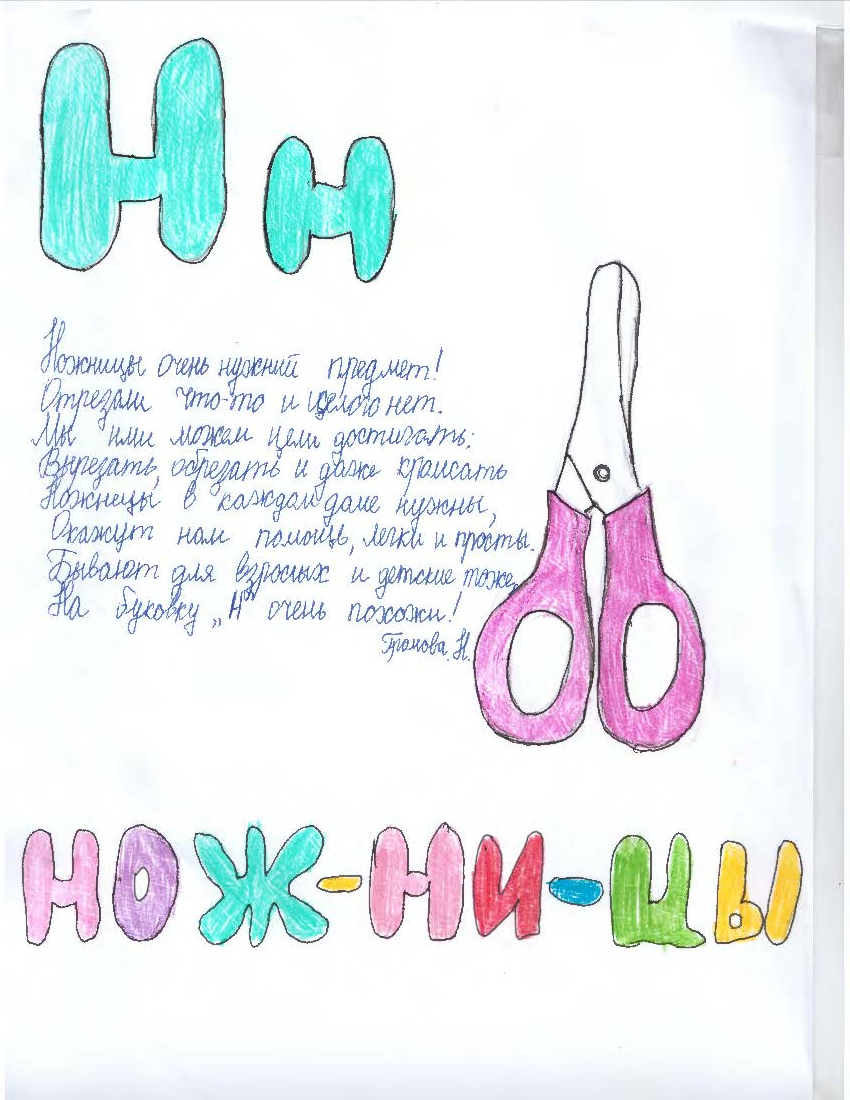 Н н
Ножницы очень нужний предмет!
Отрезали что-то и целого нет.
Мы ими можем цели достигать:
Вырезать, обрезать и даже краисать
Ножницы в каждом доме нужны,
Окажут нам помощь, легки и просты.
Бывают для взрослых и детские тоже,
На буковку „Н" очень похожи!
Громова. Н.
НОЖ-НИ-ЦЫ